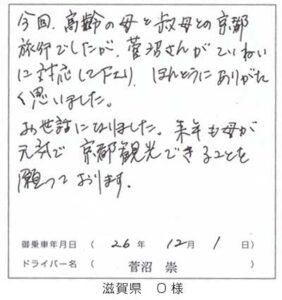 今回、高齢の母と叔母との京都
旅行でしたが、菅沼さんがていねい
に対応して下さり、ほんとうにありがた
く思いました。
お世話になりました。来年も母が
元気で京都観光できることを
願っております。
御乗車年月日 ( 26年 12月 1日 )
ドライバー名 ( 菅沼 崇 )
滋賀県 O様